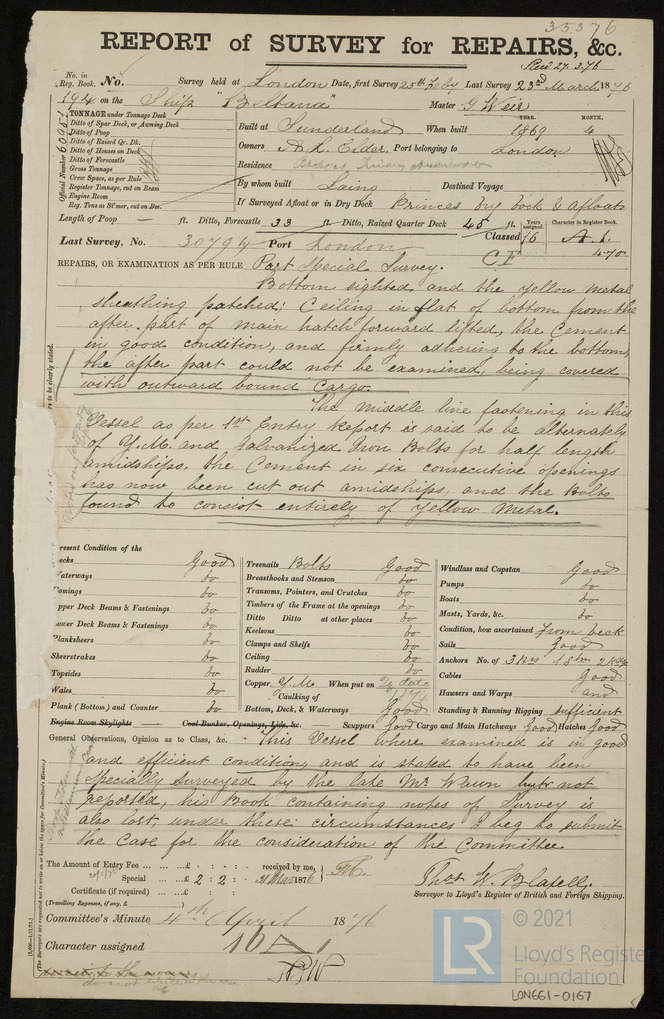 35376
REPORT of SURVEY for REPAIRS, &c.
Recd 27.3.76
No. in Reg. Book. No. Survey held at London Date, first Survey 25th Feby Last Survey 23rd March 1876
194 on the Ship "Beltana" Master G Weir
TONNAGE under Tonnage Deck
Ditto of Spar Deck, or Awning Deck
Ditto of Poop
Ditto of Raised Qr. Dk.
Ditto of Houses on Deck
Ditto of Forecastle
Gross Tonnage
Crew Space, as per Rule
Register Tonnage, cut on Beam
Engine Room
Reg. Tons as St'mer, cut on Bm.
Official Number 60051
YEAR. MONTH.
Built at Sunderland When built 1869 4
Owners A. L. Elder Port belonging to London
Residence
By whom built Laing Destined Voyage
If Surveyed Afloat or in Dry Dock Princes Dry Dock & Afloat
Length of Poop — ft. Ditto, Forecastle 33 ft. Ditto, Raised Quarter Deck 45 ft.
Years assigned. Character in Register Book.
Last Survey, No. 30794 Port London Classed 16 A.1.
4.70
REPAIRS, OR EXAMINATION AS PER RULE Part Special Survey.
Bottom sighted and the yellow metal
sheathing patched; Ceiling in flat of bottom from the
after part of main hatch forward lifted, the Cement
in good condition, and firmly adhering to the bottom,
the after part could not be examined, being covered
with outward bound Cargo.
The middle line fastening in this
Vessel as per 1st Entry Report is said to be alternately
of Y.M. and Galvanized Iron Bolts for half length
amidships, the Cement in six consecutive openings
has now been cut out amidships, and the Bolts
found to consist entirely of Yellow Metal.
to be clearly stated.
resent Condition of the
ecks Good
aterways Do
omings Do
pper Deck Beams & Fastenings Do
ower Deck Beams & Fastenings Do
Planksheers Do
Sheerstrakes Do
Topsides Do
Wales Do
Plank (Bottom) and Counter Do
Treenails Bolts Good
Breasthooks and Stemson Do
Transoms, Pointers, and Crutches Do
Timbers of the Frame at the openings Do
Ditto Ditto at other places Do
Keelsons Do
Clamps and Shelfs Do
Ceiling Do
Rudder Do
Copper Y.M. When put on
Caulking of
Bottom, Deck, & Waterways Good
Windlass and Capstan Good
Pumps Do
Boats Do
Masts, Yards, &c. Do
Condition, how ascertained From Deck
Sails Good
Anchors No. of 3 Brs 1 Str 2 Kgs
Cables Good
Hawsers and Warps and
Standing & Running Rigging sufficient
Engine Room Skylights Coal Bunker, Openings, Lids, &c. Scuppers Good Cargo and Main Hatchways Good Hatches Good
General Observations, Opinion as to Class, &c. This Vessel where examined is in good
and efficient condition, and is stated to have been
specially surveyed by the late Mr. Wawn but not
reported, his Book containing notes of Survey is
also lost, under these circumstances I beg to submit
the case for the consideration of the Committee.
The Amount of Entry Fee ... £ : : received by me,
Special ... £ 2 : 2 : 1876
Certificate (if required) ... £ : :
(Travelling Expenses, if any, £ )
Thos W. Blabell.
Surveyor to Lloyd's Register of British and Foreign Shipping.
Committee's Minute 4th April 1876
Character assigned 16 A 1
(The Surveyors are requested not to write on or below the space for Committee's Minute.)
© 2021
LR
Lloyd's Register
Foundation
LON661-0167